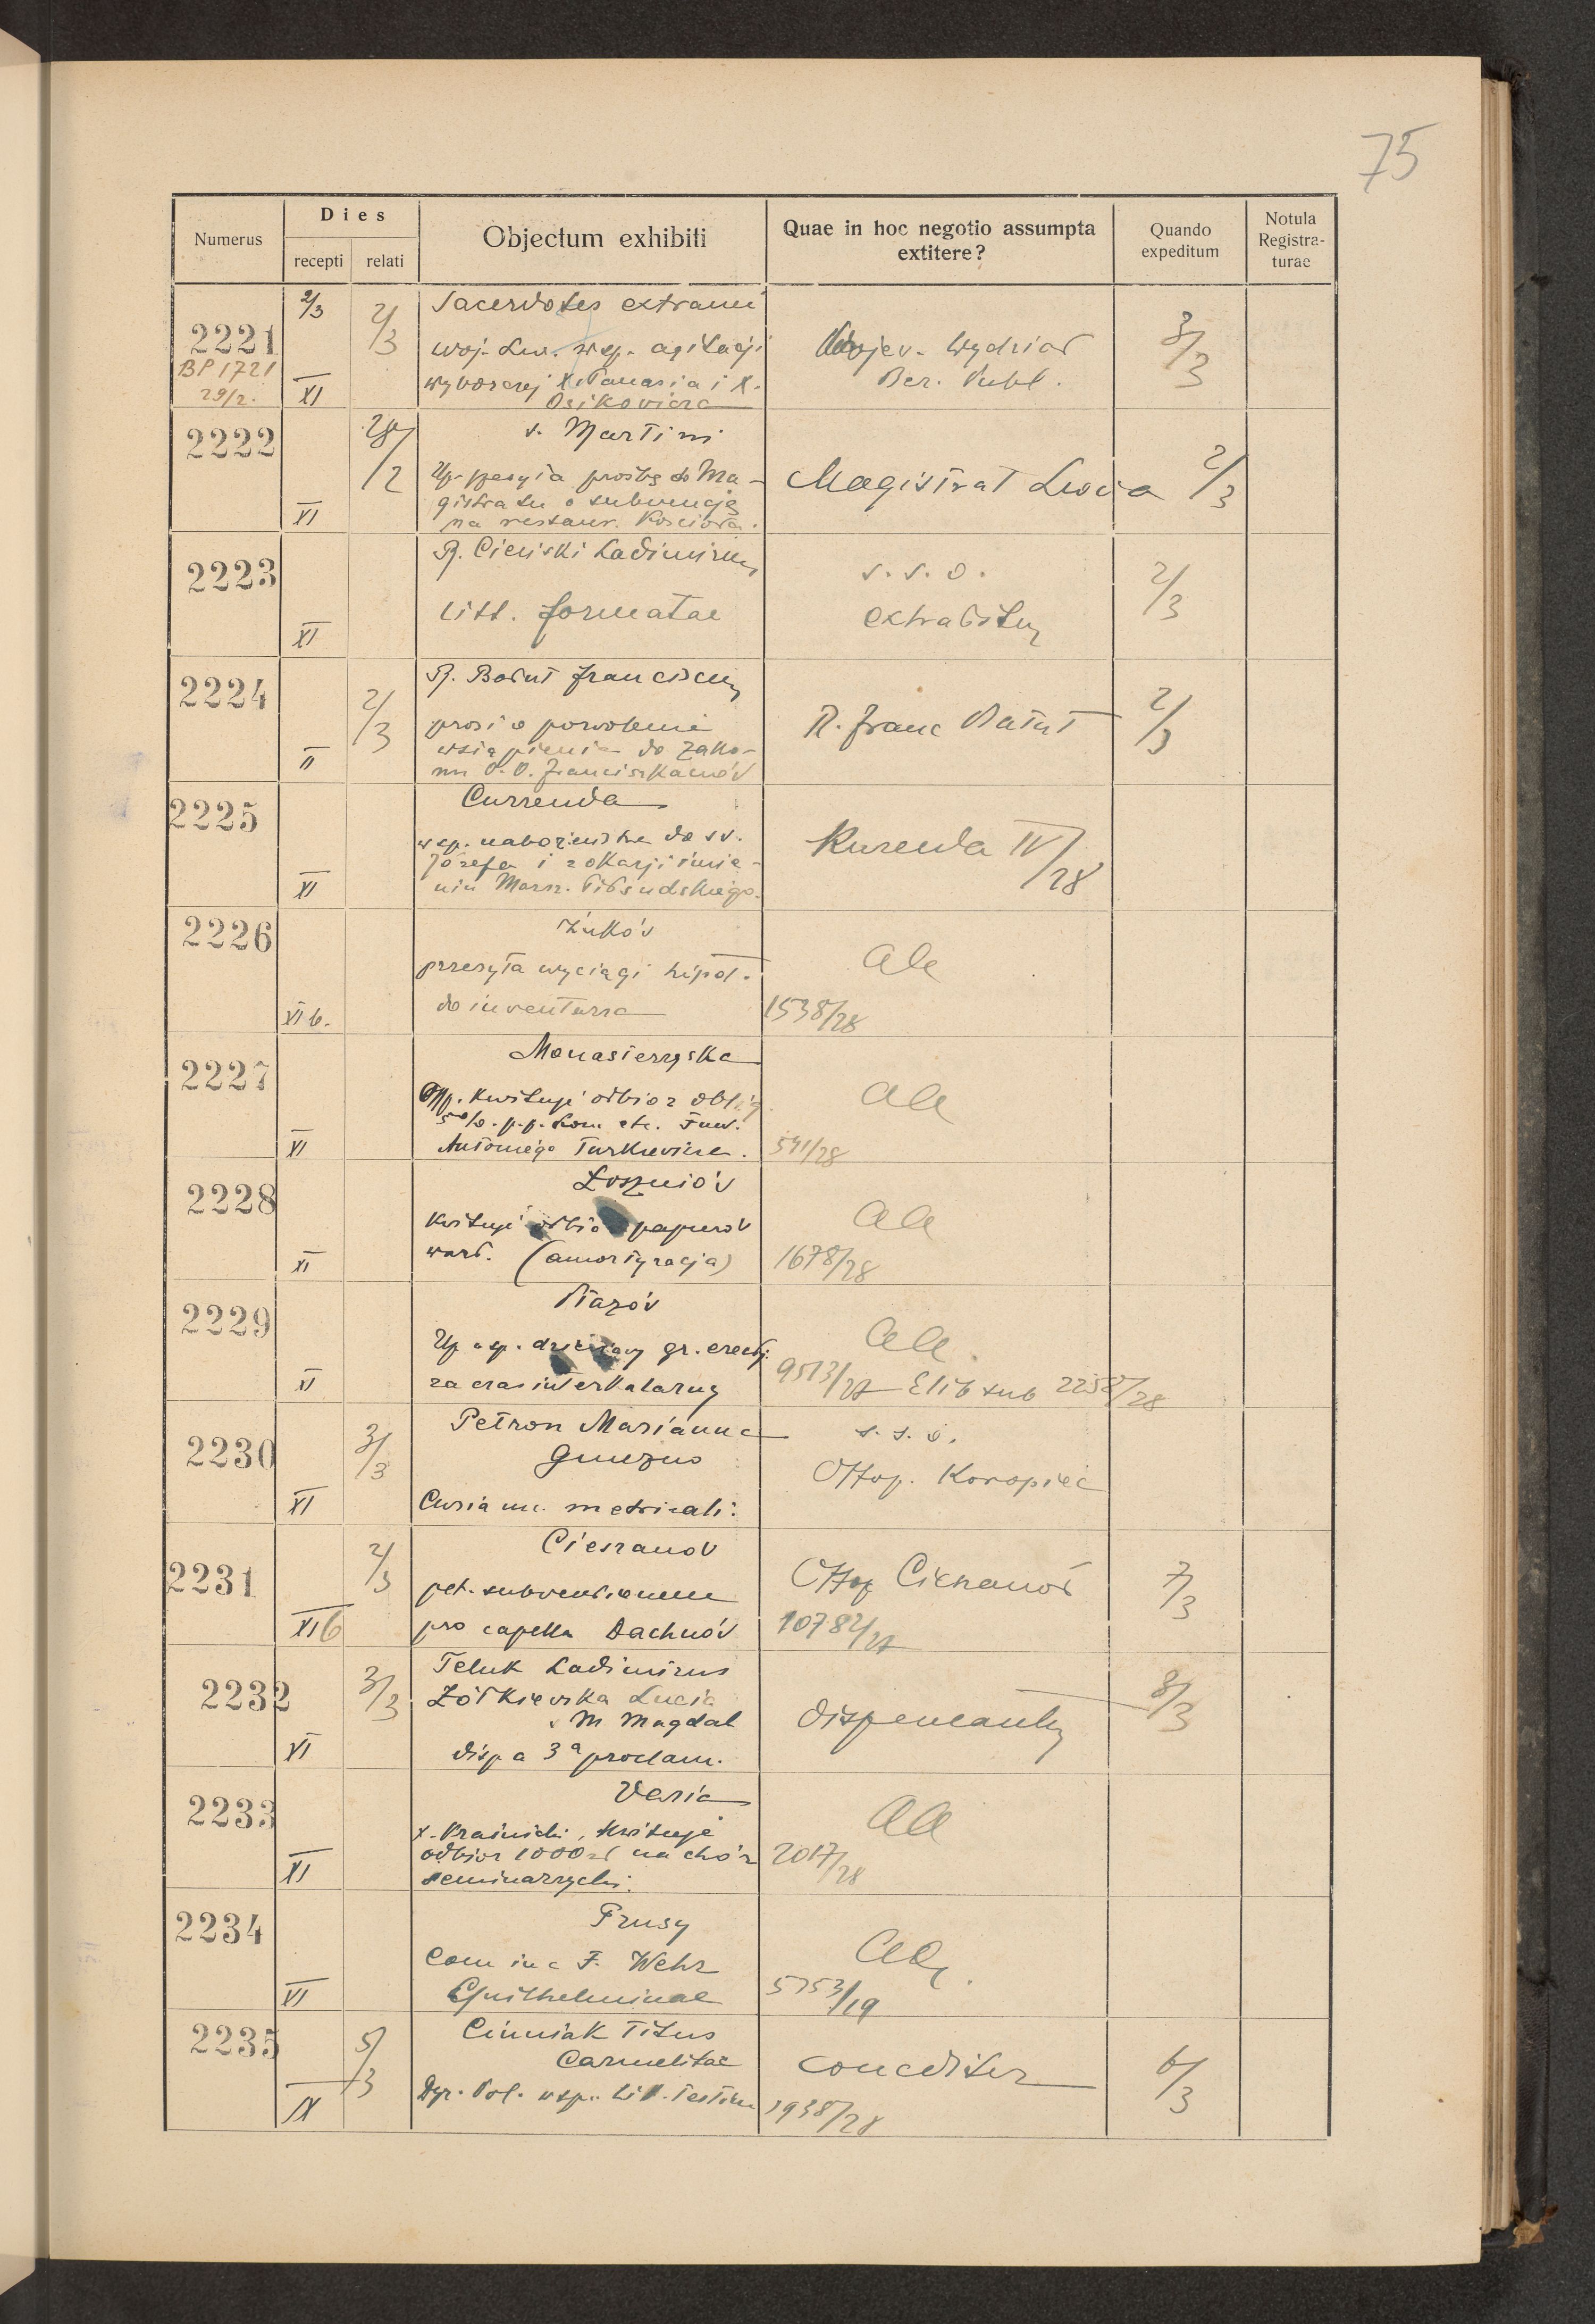 75
Numerus
Dies
recepti
relati
Objectum exhibiti
Quae in hoc negotio assumpta extitere?
Quando expeditum
Notula Registra-turae
2221
BP 1721
29/2.
2/3
XI
2/3
Sacerdotes extranei
woj. Lw. wsp. agitacji
wyborczej X. Panasia i X.
Osikowicza
Wojew. Wydział
Bez. Publ.
8/3
2222
XI
28/2
s. Martini
Up. przesyła prośbę do Ma-
gistratu o subwencję
na restaur. Kościoła.
Magistrat Lwowa
2/3
2223
XI
R. Cieński Ladimirus
litt. formatae
s. s. o.
extraditur
2/3
2224
II
2/3
R. Franciscus
prosi o pozwolenie
wstąpienia do Zako-
nu O. O. Franciszkanów
R. Franc
2/3
2225
XI
Currenda
wsp. nabożeństwa do św.
Józefa i z okazji imie-
nin Marsz. Piłsudskiego.
Kurenda IV/28
2226
XI b.
Żuków
przesyła wyciągi hipot.
do inwentarza
1538/28
2227
XI
Monasterzyska
Offp. kwituje odbiór oblig.
5%. p.p. kom etc. Fund.
Antoniego Turkiewicza.
541/28
2228
XI
Łoszniów
Kwituje odbiór papierów
wart. (amortyzacja)
1678/28
2229
XI
Płazów
Up. wsp. dzierżawy gr. erekcj.
za czas interkalarny
9513/27 Elib sub 2258/28
2230
XI
3/3
Petron Marianna
Gniezno
Curia un. metricali:
s. s. o.
Offop. Koropiec
2231
XI b
2/3
Cieszanów
pet. subventionem
pro capella Dachnów
Offop Cieszanów
10782/27
7/3
2232
XI
3/3
Teluk Ladimirus
Żółkiewska Lucia
s M Magdal
disp a 3ª proclam.
dispensantur
8/3
2233
XI
Varia
X. kwituje
odbiór 1000 zł na chór
seminarzycki.
2017/28
2234
VI
Prusy
Com in c F. Wehr
Guilhelminae
5753/19
2235
IX
5/3
Cimiak Titus
Carmelitae
Dyr. Pol. wsp. litt. testim
conceditur
1938/28
6/3